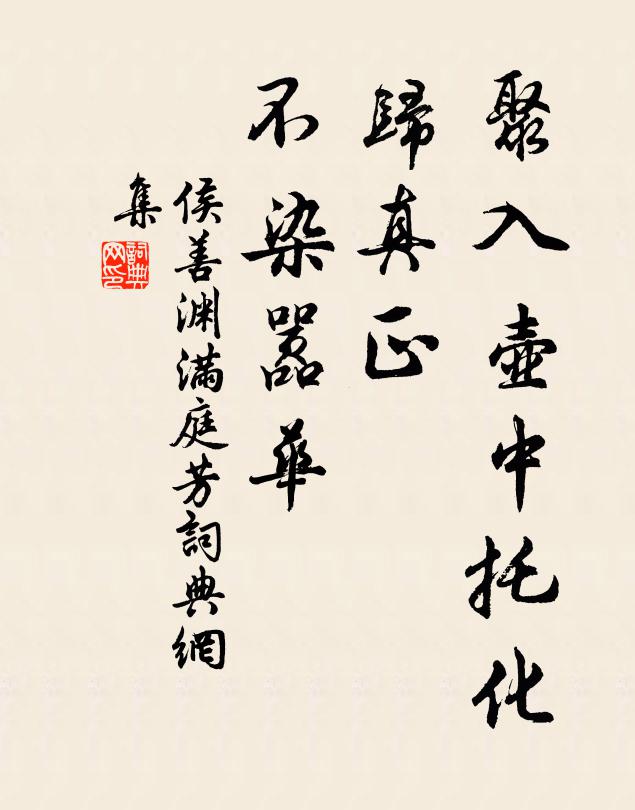 聚入壺中托化
歸真正
不染嚣華
侯善渊滿庭芳詞典網
集
詞典
网印